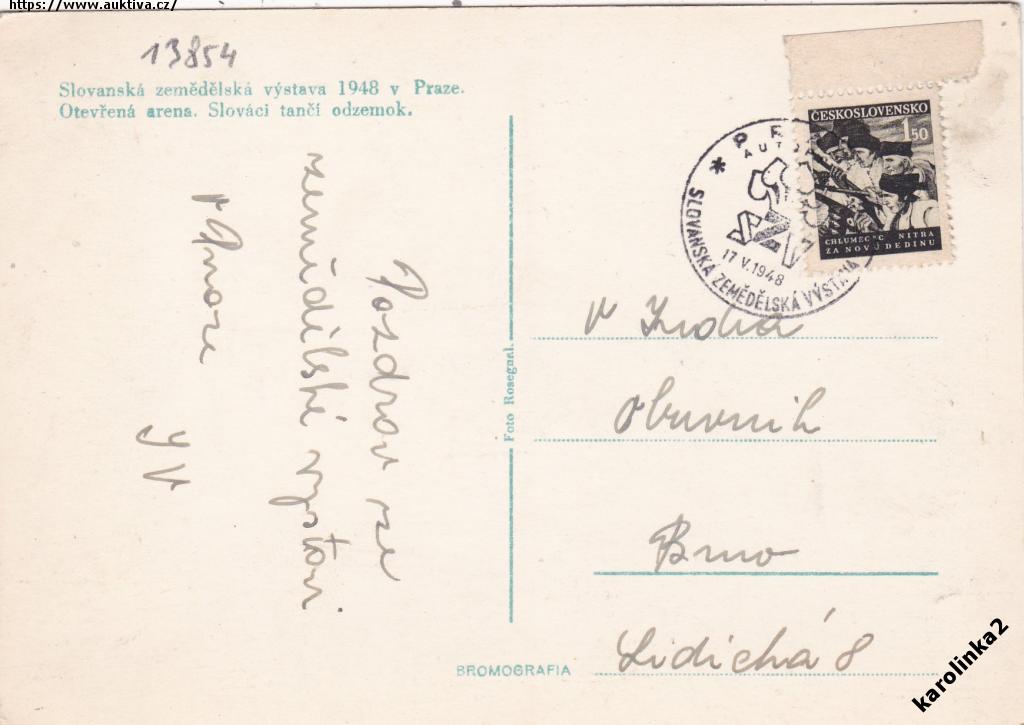 https://www.auktiva.cz/
13854
Slovanská zemědělská výstava 1948 v Praze.
Otevřená arena. Slováci tančí odzemok.
Pozdrav ze
zemědělské výstavi
v Praze
ČESKOSLOVENSKO
1 50
CHLUMEC N.C. NITRA
ZA NOVÚ DEDINU
AUTOP
17 V.1948
SLOVANSKÁ ZEMĚDĚLSKÁ VÝSTAVA
Foto Rosegnal.
Obuvník
Brno
Lidická 8
BROMOGRAFIA
karolinka2